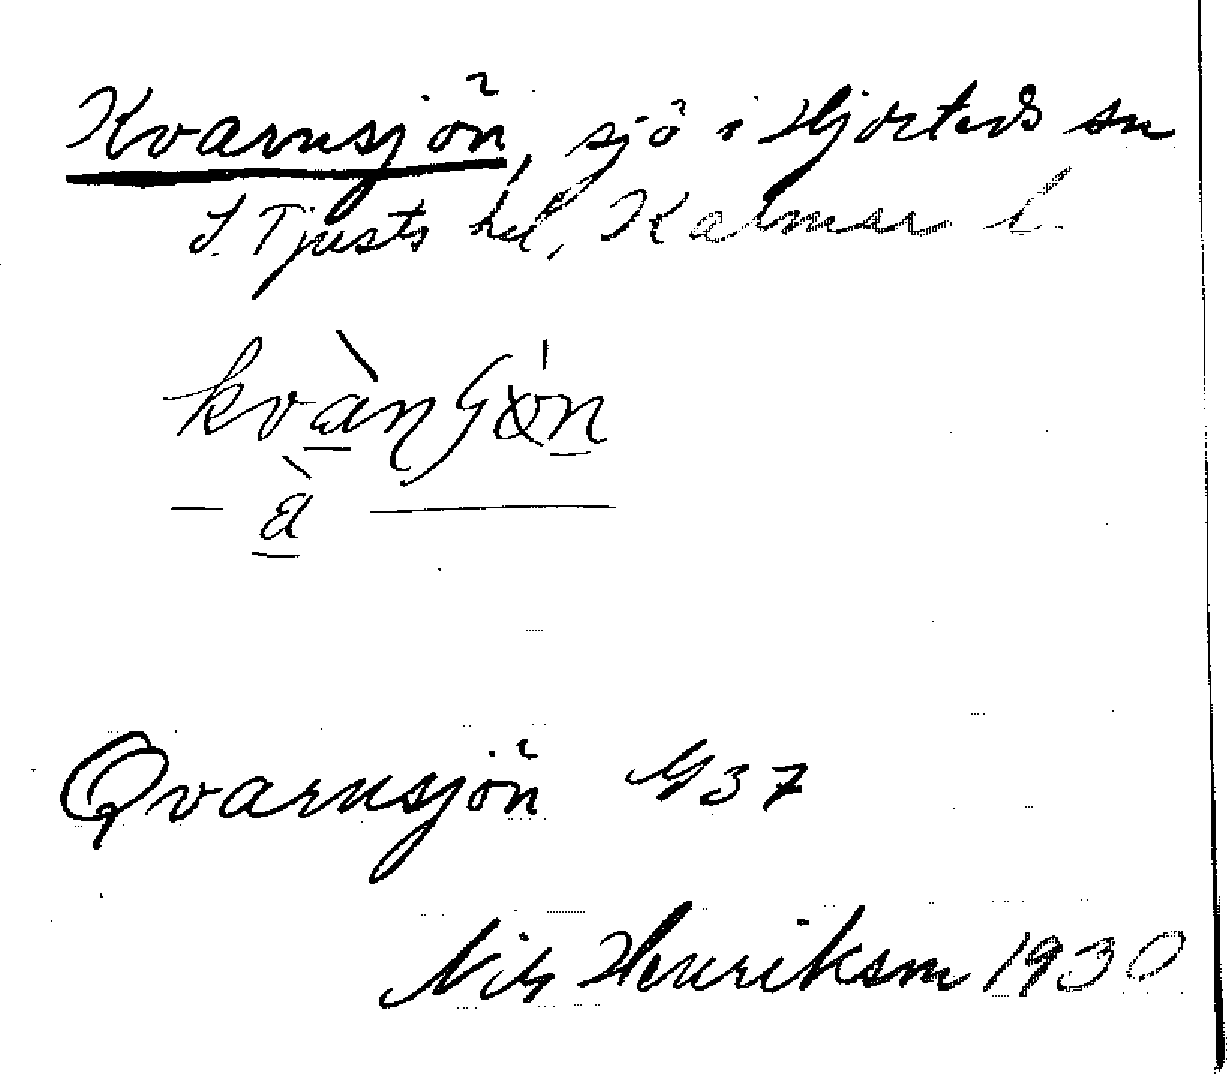 Kvarnsjön, sjö i Hjorteds sn
S. Tjusts hd, Kalmar l.
kvàŋʃön
— à —
Qvarnsjön G 37
Nils Henrikson 1930